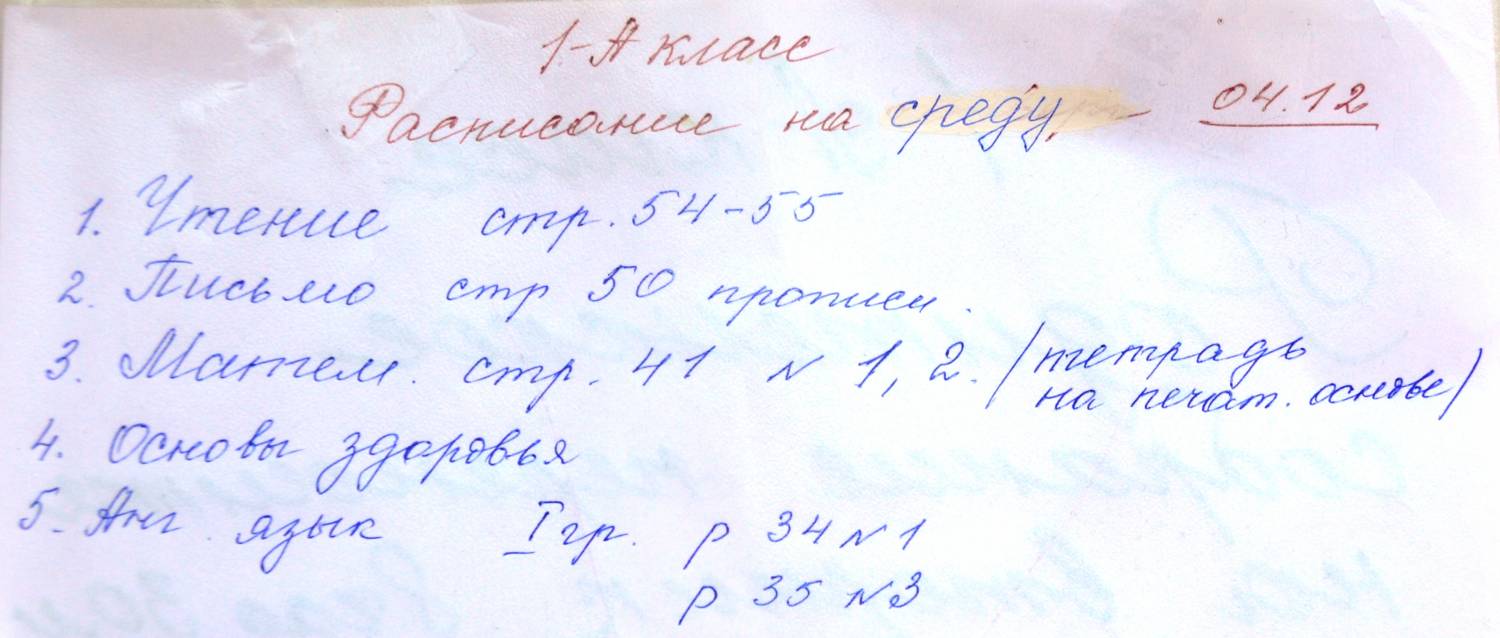 1-А класс
Расписание на среду 04.12
1. Чтение стр. 54-55
2. Письмо стр 50 прописи.
3. Матем. стр. 41 № 1, 2. (тетрадь
на печат. основе)
4. Основы здоровья
5. Анг. язык I гр. p 34 № 1
p 35 № 3